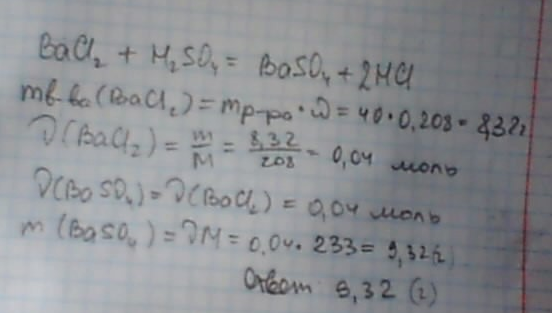 BaCl₂ + H₂SO₄ = BaSO₄ + 2HCl
mв-ва(BaCl₂) = mр-ра · ω = 40 · 0,208 = 8,32г
ν(BaCl₂) = m/M = 8,32/208 = 0,04 моль
ν(BaSO₄) = ν(BaCl₂) = 0,04 моль
m (BaSO₄) = νM = 0,04 · 233 = 9,32(г)
Ответ: 9,32 (г)